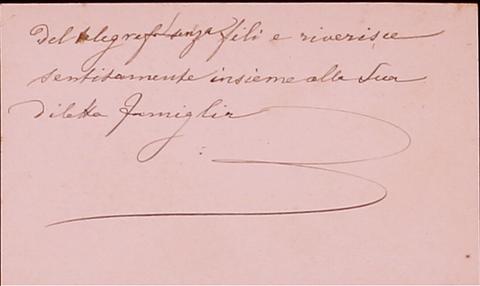 Del telegrafo senza fili e riverisce
sentitamente insieme alla Sua
Diletta famiglia